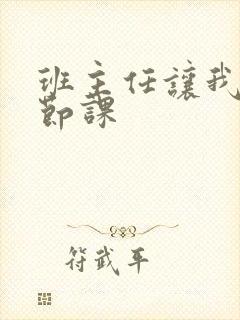 班主任讓我
節課
符武平